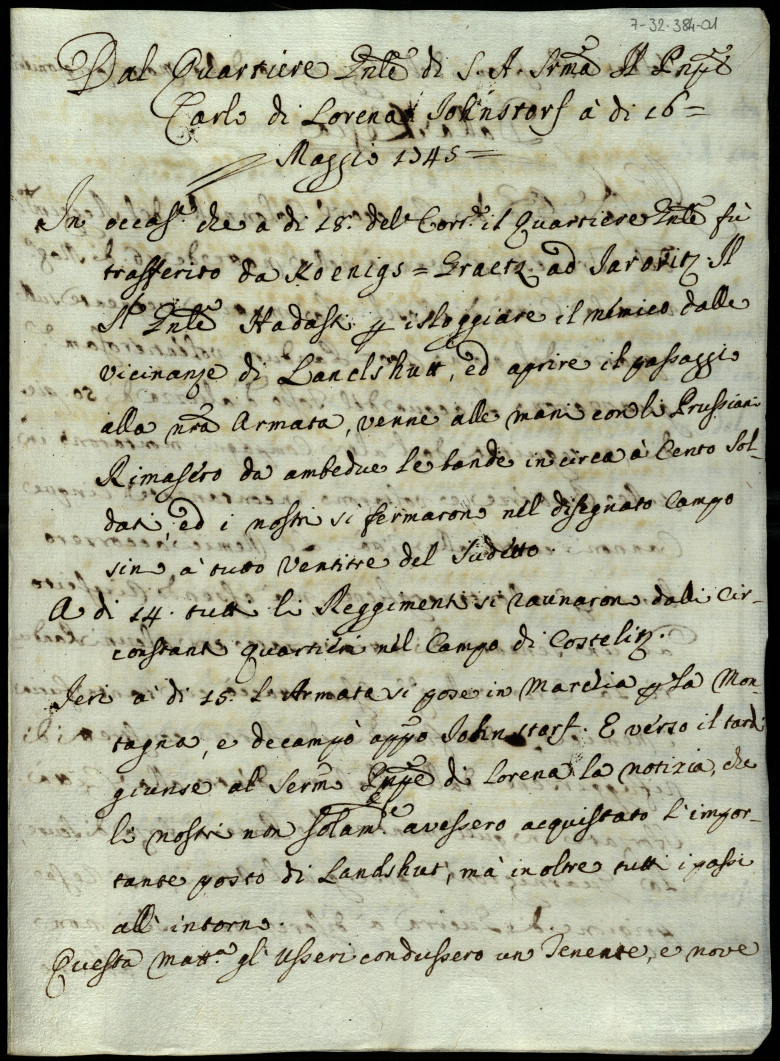 7-32-384-01
Dal Quartiere Gnle di S. A. Srma Il Pnpe
Carlo di Lorena Johnstorf à di 16=
Maggio 1745=
In occas.e che a di 18. del Corr.e il Quartiere Gnle fù
trasferito da Koenigs=Graetz ad Jarovitz. Il
Sr Gnle Nadasti p isloggiare il nemico dalle
vicinanze di Landshutt, ed aprire il passaggio
alla nra Armata, venne alle mani con li Prussiani
Rimasero da ambedue le bande in circa à Cento Sol-
dati, ed i nostri si fermarono nel disegnato Campo
sin à tutto Ventitre del Sudetto.
A di 14. tutti li Reggimenti si raunarono dalli Cir-
constanti quartieri nel Campo di Costelitz.
Jeri à di 15. L'Armata si pose in Marchia p la Mon-
tagna, e decampò appo Johnstorf. E verso il tardi
giunse al Sermo Pnpe di Lorena la notizia, che
li nostri non solam.e avessero acquistato l'impor-
tante posto di Landshut, mà in oltre tutti i passi
all'intorno.
Questa Matt.a gl'Usseri condussero un Tenente, e nove